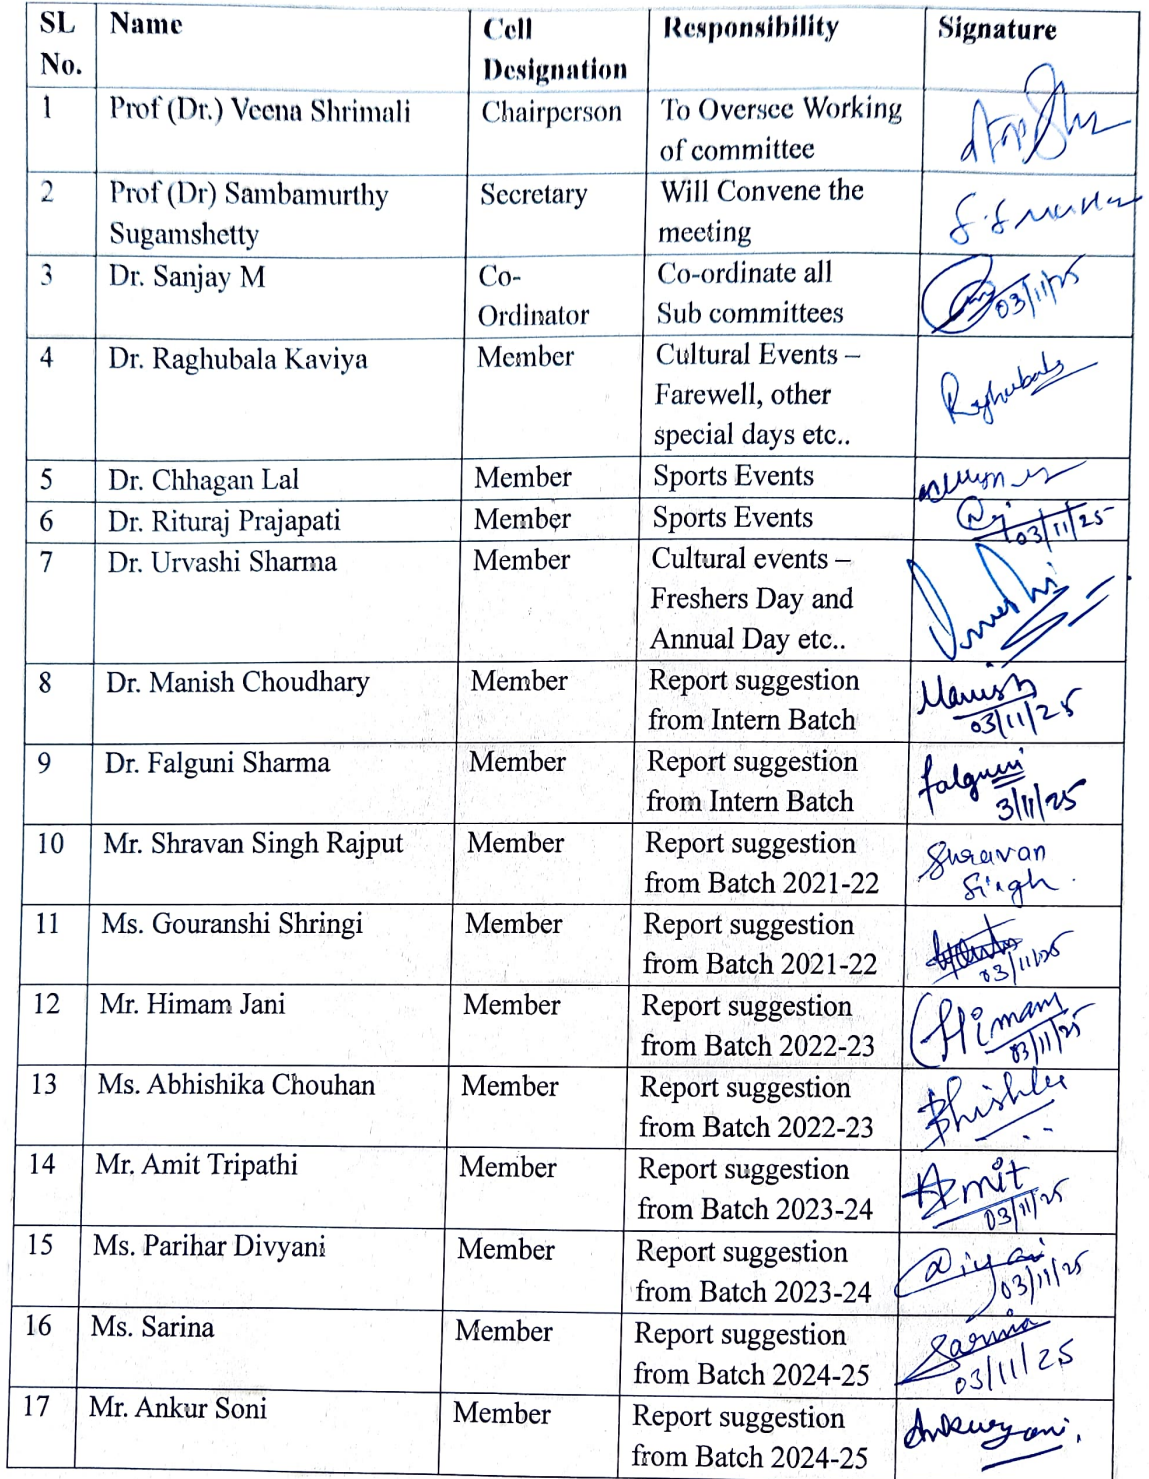 SL No. Name Cell Designation Responsibility Signature
1 Prof (Dr.) Veena Shrimali Chairperson To Oversee Working
of committee
2 Prof (Dr) Sambamurthy Secretary Will Convene the
Sugamshetty meeting
3 Dr. Sanjay M Co- Co-ordinate all
Ordinator Sub committees 03/11/25
4 Dr. Raghubala Kaviya Member Cultural Events – Raghubala
Farewell, other
special days etc..
5 Dr. Chhagan Lal Member Sports Events
6 Dr. Rituraj Prajapati Member Sports Events 03/11/25
7 Dr. Urvashi Sharma Member Cultural events –
Freshers Day and
Annual Day etc..
8 Dr. Manish Choudhary Member Report suggestion Manish
from Intern Batch 03/11/25
9 Dr. Falguni Sharma Member Report suggestion falguni
from Intern Batch 3/11/25
10 Mr. Shravan Singh Rajput Member Report suggestion Shravan
from Batch 2021-22 Singh
11 Ms. Gouranshi Shringi Member Report suggestion
from Batch 2021-22 03/11/25
12 Mr. Himam Jani Member Report suggestion Himam
from Batch 2022-23 03/11/25
13 Ms. Abhishika Chouhan Member Report suggestion
from Batch 2022-23
14 Mr. Amit Tripathi Member Report suggestion Amit
from Batch 2023-24 03/11/25
15 Ms. Parihar Divyani Member Report suggestion
from Batch 2023-24 03/11/25
16 Ms. Sarina Member Report suggestion Sarina
from Batch 2024-25 03/11/25
17 Mr. Ankur Soni Member Report suggestion
from Batch 2024-25